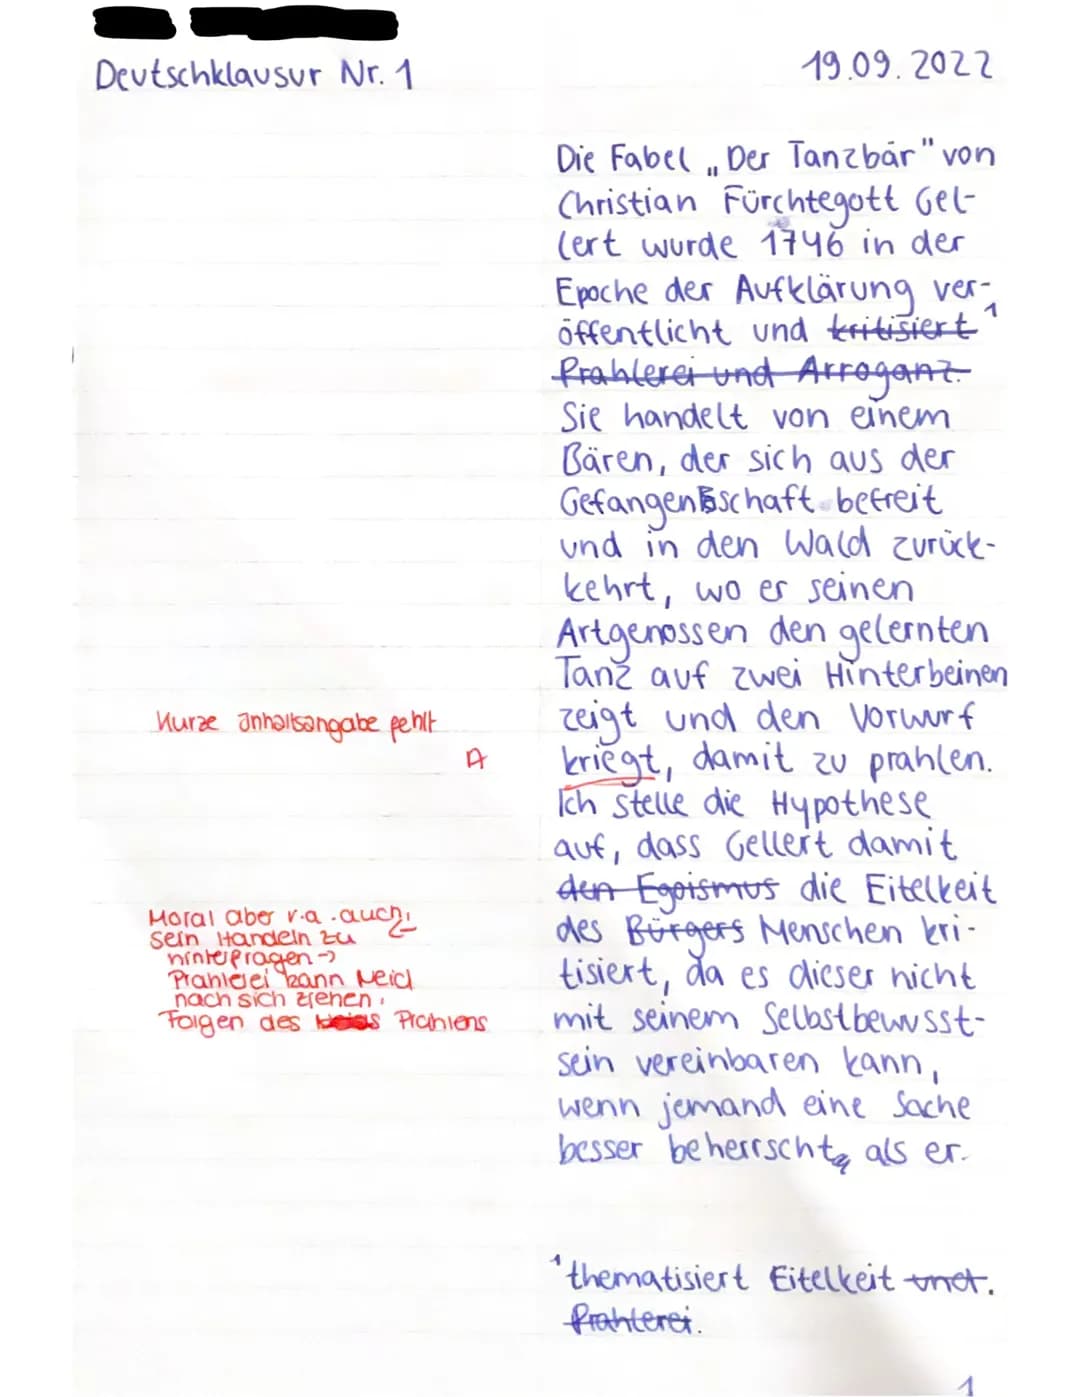 Deutschklausur Nr. 1
19.09.2022
Die Fabel „Der Tanzbär" von
Christian Fürchtegott Gel-
lert wurde 1746 in der
Epoche der Aufklärung ver-
öffentlicht und kritisiert ¹
Prahlerei und Arroganz.
Sie handelt von einem
Bären, der sich aus der
Gefangenschaft befreit
und in den Wald zurück-
kehrt, wo er seinen
Artgenossen den gelernten
Tanz auf zwei Hinterbeinen
zeigt und den Vorwurf
kriegt, damit zu prahlen.
Ich stelle die Hypothese
auf, dass Gellert damit
den Egoismus die Eitelkeit
des Bürgers Menschen kri-
tisiert, da es dieser nicht
mit seinem Selbstbewusst-
sein vereinbaren kann,
wenn jemand eine Sache
besser beherrscht, als er.
¹ thematisiert Eitelkeit und.
Prahlerei.
1
Kurze Inhaltsangabe fehlt
A
Moral aber v.a. auch,
sein Handeln zu
hinterfragen ->
Prahlerei kann Neid
nach sich ziehen.
Folgen des Prahlens